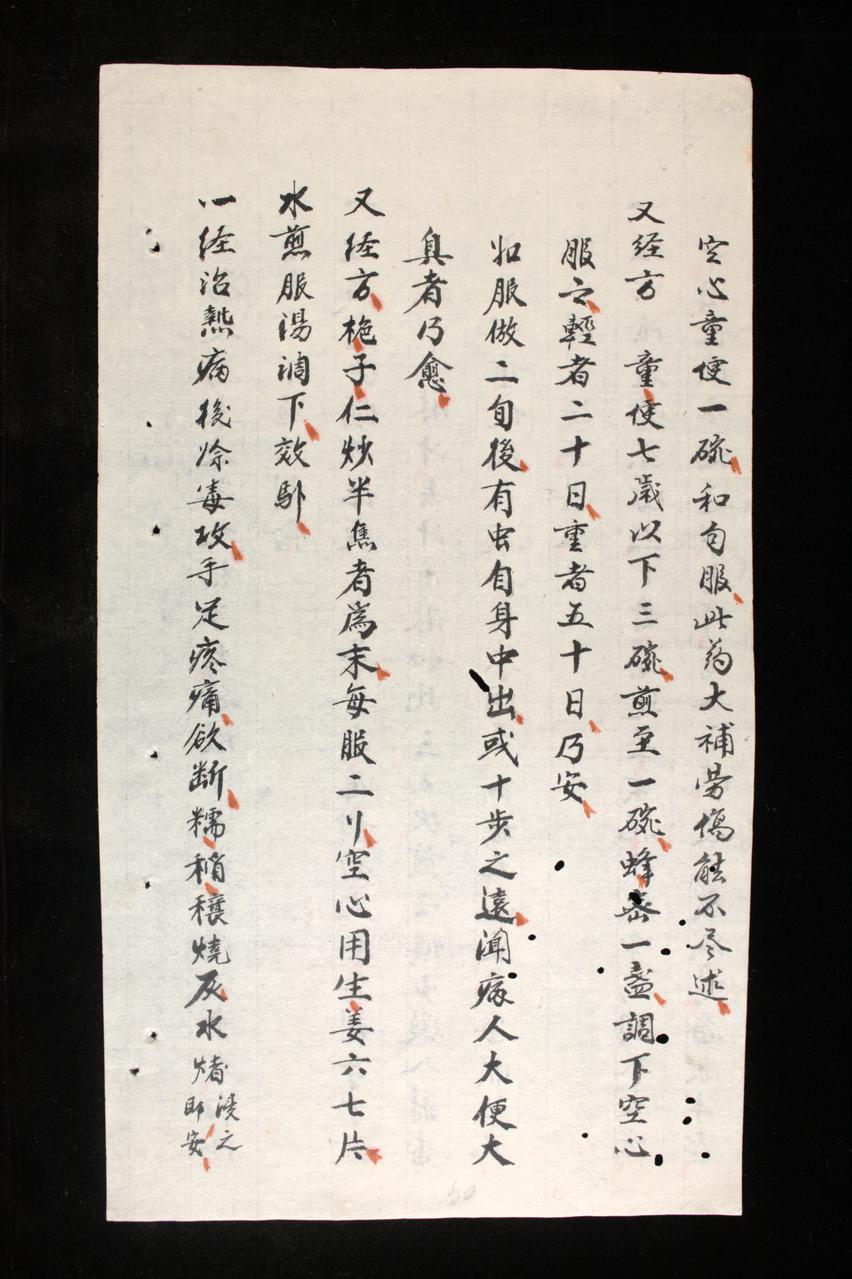 空心童便一碗和匀服此葯大補勞傷能不尽述
又経方童便七歲以下三碗煎至一碗蜂蜜一盞調下空心
服之輕者二十日重者五十日乃安
如服倣二旬後有虫自身中出或十步之遠聞病人大便大
臭者乃愈
又経方梔子仁炒半焦者為末每服二刂空心用生姜六七片
水煎服湯調下效馿
一経治熱病後除毒攻手足疼痛欲断糯稍穰燒灰水煑浸之
即安